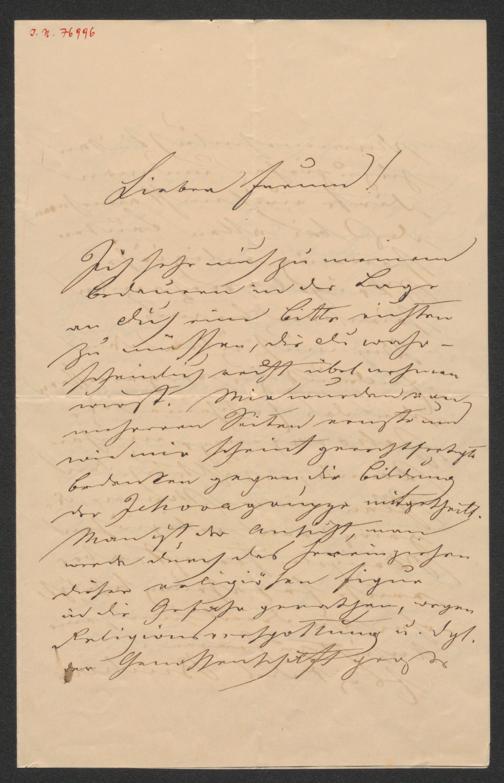 I. N. 76996
Lieber Freund!
Ich sehe mich zu meinem
Bedauern in der Lage
an Dich eine Bitte richten
zu müssen, die Du wahr-
scheinlich recht übel nehmen
wirst. Mir wurden von
mehreren Seiten ernste und
wie mir scheint gerechtfertigte
Bedenken gegen die Bildung
der gruppe mitgetheilt.
Man ist der Ansicht, man
werde durch das hereinziehen
dieser religiösen Figur
in die Gefahr gerathen, wegen
Religionsverspottung u. dgl.
der Genossenschaft große